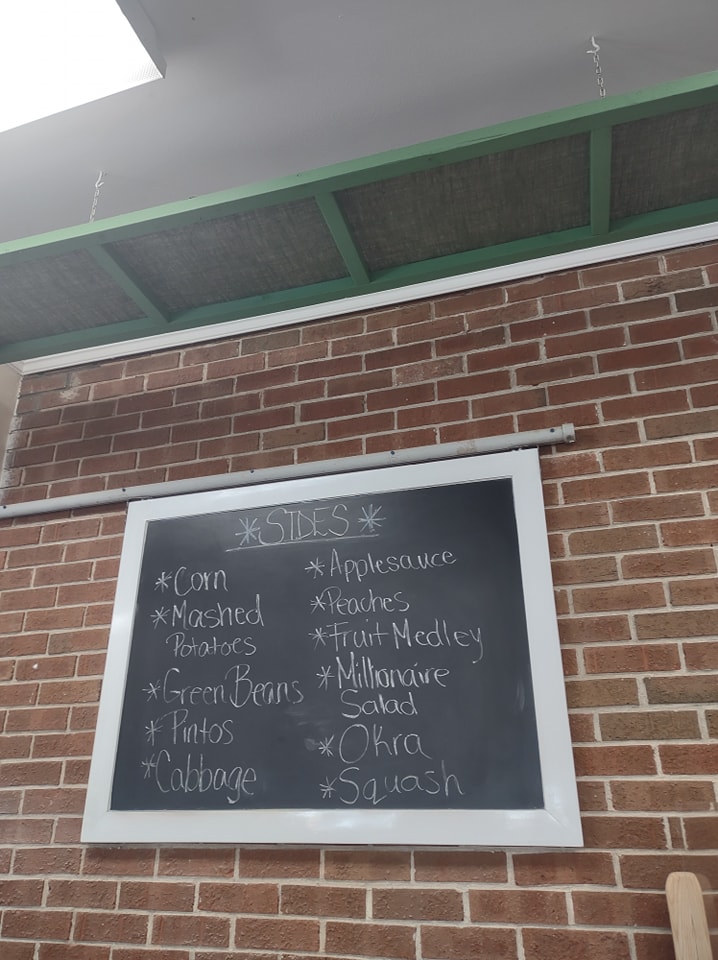 *SIDES*
*Corn
*Mashed
Potatoes
*Green Beans
*Pintos
*Cabbage
*Applesauce
*Peaches
*Fruit Medley
*Millionaire
Salad
*Okra
*Squash